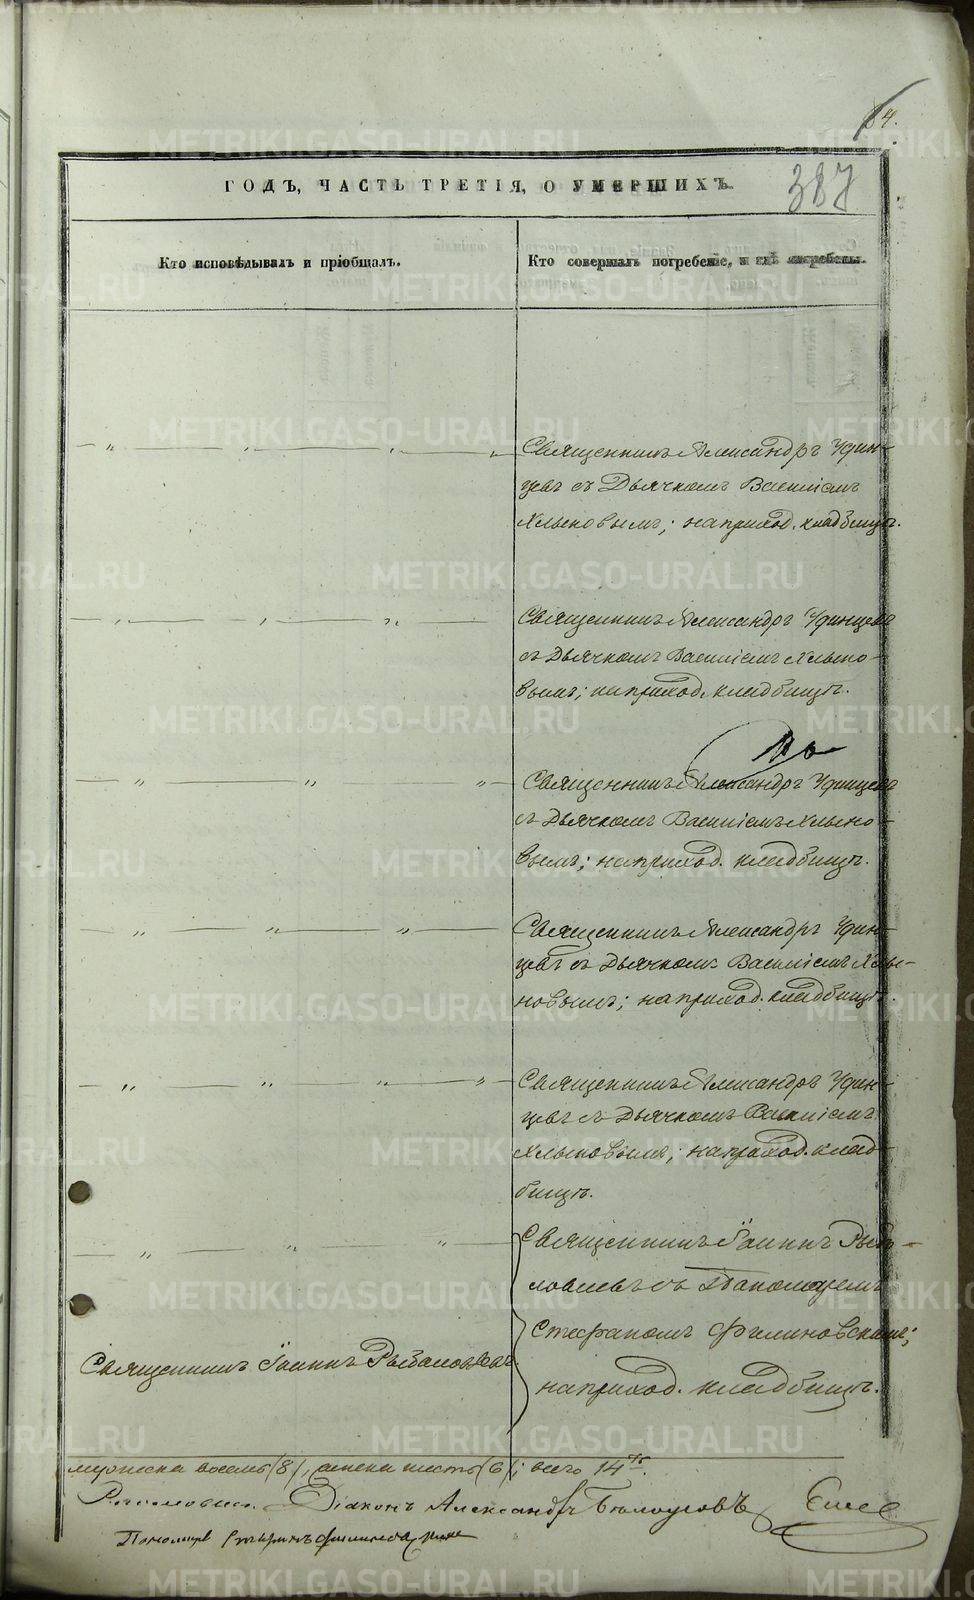 64.
387
ГОДЪ, ЧАСТЬ ТРЕТІЯ, О УМЕРШИХЪ.
Кто исповѣдывалъ и пріобщалъ.
Кто совершалъ погребеніе, и гдѣ погребены.
Священникъ Александръ Удин-
цевъ съ Дьячкомъ Василіемъ
Хлыновымъ; на приход. кладбищѣ.
Священникъ Александръ Удинцевъ
съ Дьячкомъ Василіемъ Хлыно-
вымъ; на приход. кладбищѣ.
Священникъ Александръ Удинцевъ
съ Дьячкомъ Василіемъ Хлыно-
вымъ; на приход. кладбищѣ.
Священникъ Александръ Удин-
цевъ съ Дьячкомъ Василіемъ Хлы-
новымъ; на приход. кладбищѣ.
Священникъ Александръ Удин-
цевъ съ Дьячкомъ Василіемъ
Хлыновымъ; на приход. клад-
бищѣ.
Священникъ Іоаннъ Рыбо-
ловлевъ съ Пономаремъ
Стефаномъ Филиновскимъ;
на приход. кладбищѣ.
Священникъ Іоаннъ
мужеска восемь (8), женска шесть (6); всего 14ть.
Діаконъ Александръ Бѣлоусовъ
Пономарь
METRIKI.GASO-URAL.RU